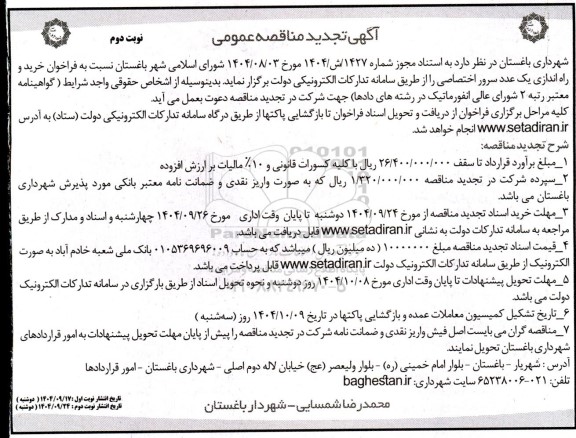 آگهی تجدید مناقصه عمومی
نوبت دوم
شهرداری باغستان در نظر دارد به استناد مجوز شماره ۱۴۲۷/ش/۱۴۰۴ مورخ ۱۴۰۴/۰۸/۰۳ شورای اسلامی شهر باغستان نسبت به فراخوان خرید و
راه اندازی یک عدد سرور اختصاصی را از طریق سامانه تدارکات الکترونیکی دولت برگزار نماید. بدینوسیله از اشخاص حقوقی واجد شرایط ( گواهینامه
معتبر رتبه ۲ شورای عالی انفورماتیک در رشته های دادها) جهت شرکت در تجدید مناقصه دعوت بعمل می آید.
کلیه مراحل برگزاری فراخوان از دریافت و تحویل اسناد فراخوان تا بازگشایی پاکتها از طریق درگاه سامانه تدارکات الکترونیکی دولت (ستاد) به آدرس
www.setadiran.ir انجام خواهد شد.
شرح تجدید مناقصه:
۱_مبلغ برآورد قرارداد تا سقف ۲۶/۴۰۰/۰۰۰/۰۰۰ ریال با کلیه کسورات قانونی و ۱۰٪ مالیات بر ارزش افزوده
۲_سپرده شرکت در تجدید مناقصه ۱/۳۲۰/۰۰۰/۰۰۰ ریال که به صورت واریز نقدی و ضمانت نامه معتبر بانکی مورد پذیرش شهرداری
باغستان می باشد.
۳_مهلت خرید اسناد تجدید مناقصه از مورخ ۱۴۰۴/۰۹/۲۴ دوشنبه تا پایان وقت اداری مورخ ۱۴۰۴/۰۹/۲۶ چهارشنبه و اسناد و مدارک از طریق
مراجعه به سامانه تدارکات دولت به نشانی www.setadiran.ir قابل دریافت می باشد.
۴_قیمت اسناد تجدید مناقصه مبلغ ۱۰۰۰۰۰۰۰ ( ده میلیون ریال ) میباشد که به حساب ۰۱۰۵۳۶۹۶۹۶۰۰۹ بانک ملی شعبه خادم آباد به صورت
الکترونیک از طریق سامانه تدارکات الکترونیک دولت www.setadiran.ir قابل پرداخت می باشد.
۵_مهلت تحویل پیشنهادات تا پایان وقت اداری مورخ ۱۴۰۴/۱۰/۰۸ روز دوشنبه و نحوه تحویل اسناد از طریق بارگزاری در سامانه تدارکات الکترونیک
دولت می باشد.
۶_تاریخ تشکیل کمیسیون معاملات عمده و بازگشایی پاکتها در تاریخ ۱۴۰۴/۱۰/۰۹ روز (سه شنبه )
۷_مناقصه گران می بایست اصل فیش واریز نقدی و ضمانت نامه شرکت در تجدید مناقصه را پیش از پایان مهلت تحویل پیشنهادات به امور قراردادهای
شهرداری باغستان تحویل نمایند.
آدرس : شهریار - باغستان - بلوار امام خمینی (ره) - بلوار ولیعصر (عج) خیابان لاله دوم اصلی - شهرداری باغستان - امور قراردادها
تلفن: ۰۲۱-۶۵۲۳۸۰۰۶ سایت شهرداری: baghestan.ir
محمدرضا شمسایی - شهردار باغستان
تاریخ انتشار نوبت اول :۱۴۰۴/۰۹/۱۷ ( دوشنبه )
تاریخ انتشار نوبت دوم : ۱۴۰۴/۰۹/۲۴ ( دوشنبه )